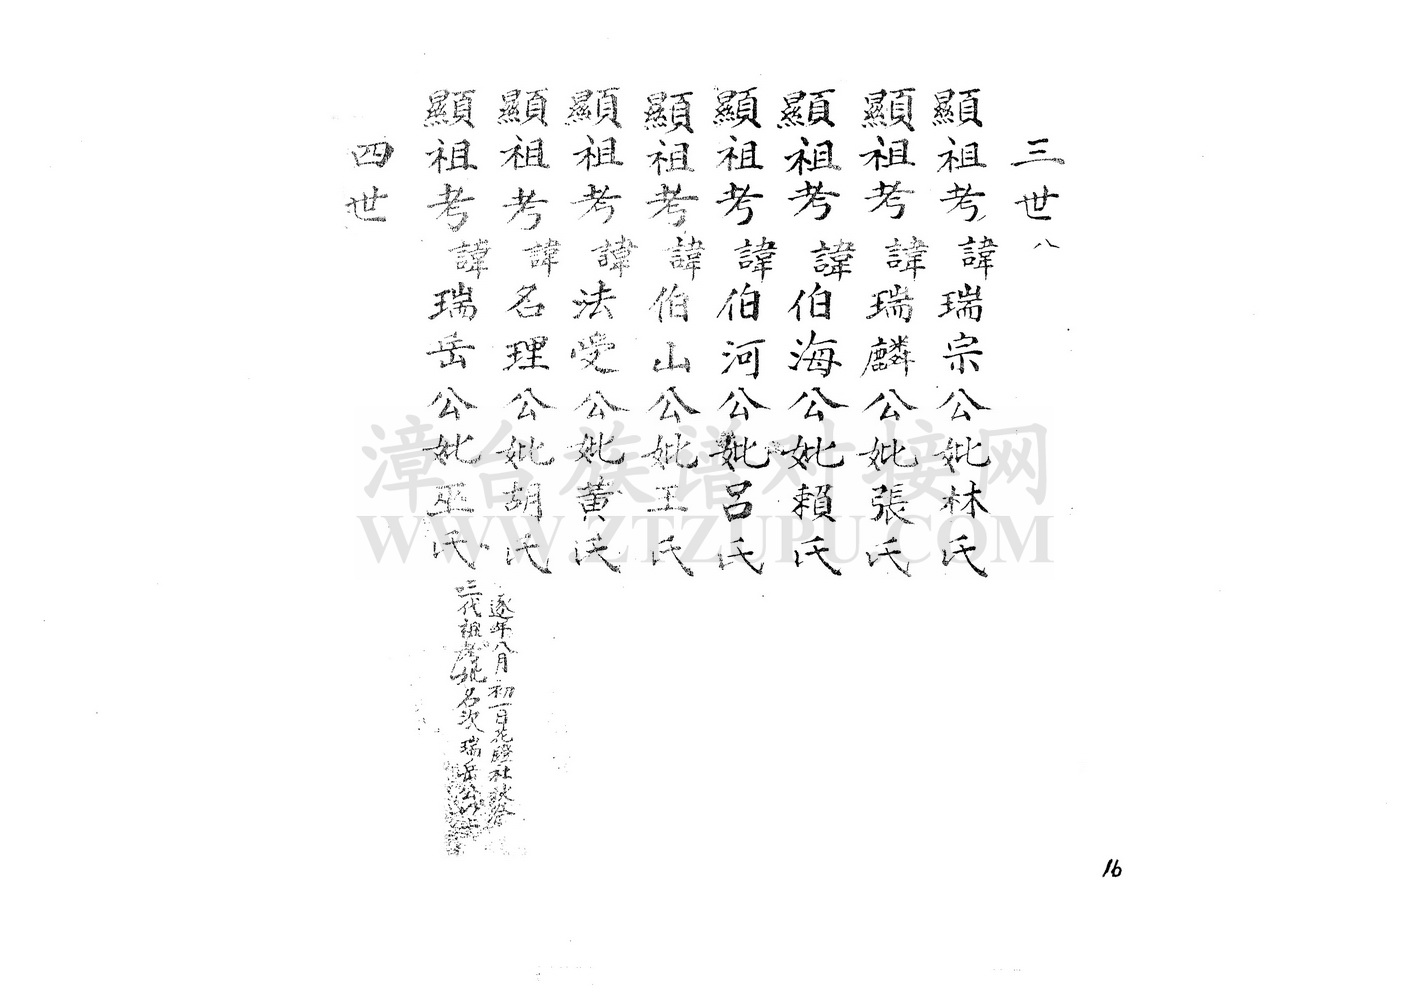 三世 八
顯祖考諱瑞宗公妣林氏
顯祖考諱瑞麟公妣張氏
顯祖考諱伯海公妣賴氏
顯祖考諱伯河公妣呂氏
顯祖考諱伯山公妣王氏
顯祖考諱法受公妣黃氏
顯祖考諱名理公妣胡氏
顯祖考諱瑞岳公妣巫氏
逐年八月初一日花燈社秋祭
三代祖考妣名次瑞岳公
四世
漳台族谱对接网
WWW.ZTZUPU.COM
16